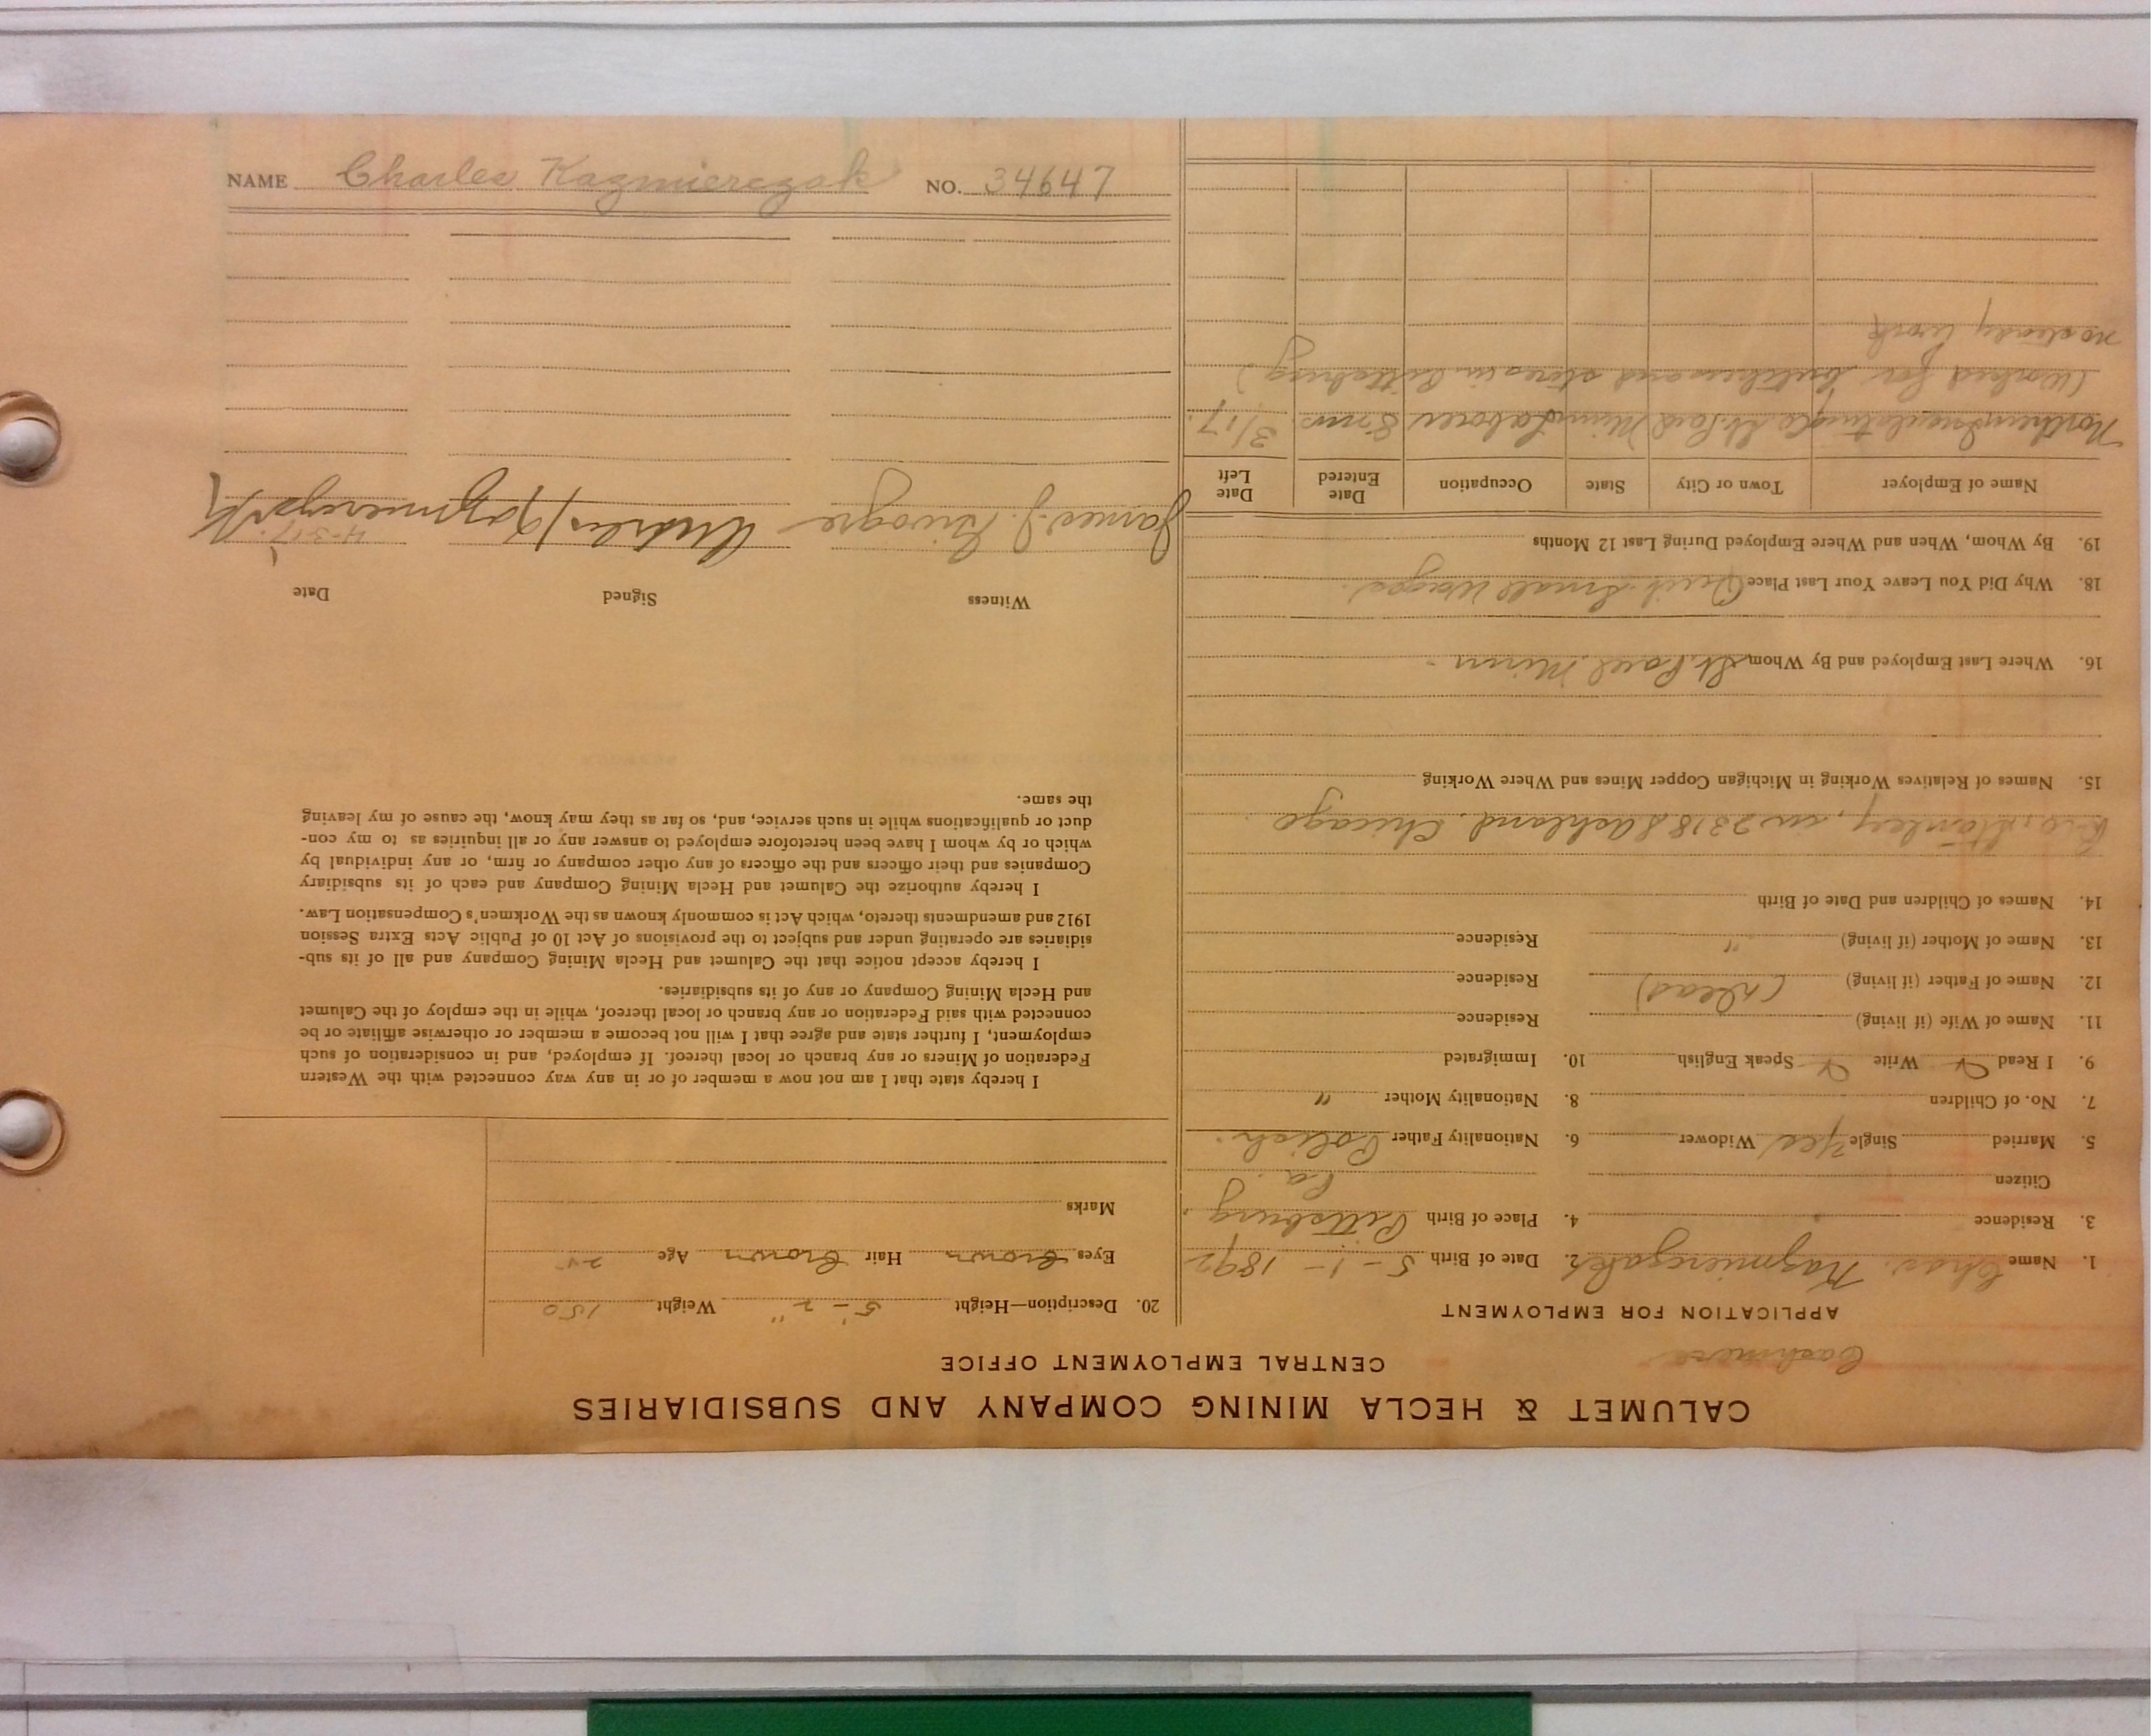 CALUMET & HECLA MINING COMPANY AND SUBSIDIARIES
CENTRAL EMPLOYMENT OFFICE
Cashmere
APPLICATION FOR EMPLOYMENT
1. Name Chas. Kazmierczak 2. Date of Birth 5-1-1892
3. Residence 4. Place of Birth Pittsburg,
Citizen Pa.
5. Married Single Yes Widower 6. Nationality Father Polish.
7. No. of Children 8. Nationality Mother "
9. I Read Write Speak English 10. Immigrated
11. Name of Wife (if living) Residence
12. Name of Father (if living) (dead) Residence
13. Name of Mother (if living) " Residence
14. Names of Children and Date of Birth
Bro, Stanley, in 2318 S Ashland. Chicago.
15. Names of Relatives Working in Michigan Copper Mines and Where Working
16. Where Last Employed and By Whom St. Paul Minn.
18. Why Did You Leave Your Last Place Quit. Small Wages.
19. By Whom, When and Where Employed During Last 12 Months
Name of Employer Town or City State Occupation Date Entered Date Left
Northern Insulating Co St. Paul Minn Laborer 8 ms. 3/17.
(Worked for butchers and stores in Pittsburg)
no steady work
20. Description—Height 5'-2" Weight 150
Eyes brown Hair brown Age 25
Marks
I hereby state that I am not now a member of or in any way connected with the Western
Federation of Miners or any branch or local thereof. If employed, and in consideration of such
employment, I further state and agree that I will not become a member or otherwise affiliate or be
connected with said Federation or any branch or local thereof, while in the employ of the Calumet
and Hecla Mining Company or any of its subsidiaries.
I hereby accept notice that the Calumet and Hecla Mining Company and all of its sub-
sidiaries are operating under and subject to the provisions of Act 10 of Public Acts Extra Session
1912 and amendments thereto, which Act is commonly known as the Workmen's Compensation Law.
I hereby authorize the Calumet and Hecla Mining Company and each of its subsidiary
Companies and their officers and the officers of any other company or firm, or any individual by
which or by whom I have been heretofore employed to answer any or all inquiries as to my con-
duct or qualifications while in such service, and, so far as they may know, the cause of my leaving
the same.
Witness Signed Date
James J. Kazmierczak 4-3-17.
NAME Charles Kazmierczak NO. 34647